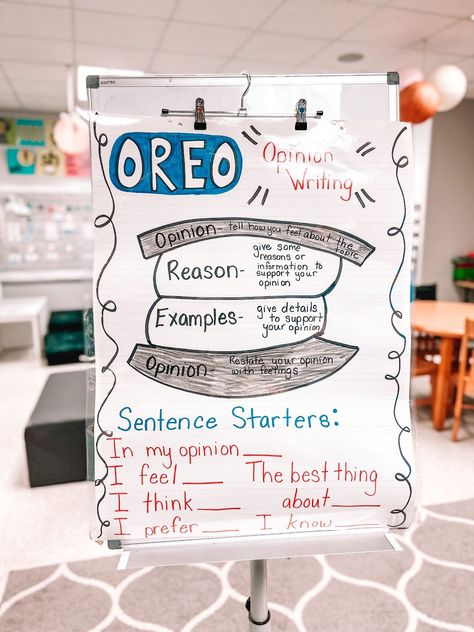 OREO
Opinion
Writing
Opinion- tell how you feel about the
topic
Reason-
give some
reasons or
information to
support your
opinion
Examples-
give details
to support
your opinion
Opinion-
Restate your opinion
with feelings
Sentence Starters:
In my opinion ___
I feel ___ The best thing
I think ___ about ___
I prefer ___ I know ___